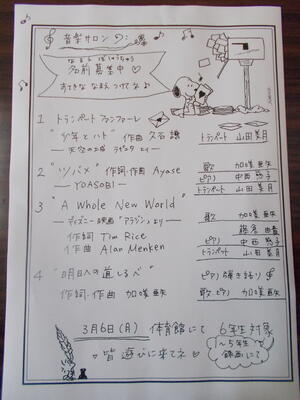 音楽サロン の:
なまえ ぼしゅうちゅう
名前募集中♡
すてきな なまえ つけてなぁ
1 トランペット ファンファーレ
"少年とハト" 作曲 久石譲
― 天空の城 ラピュタ より ―
トランペット 山田 美月
2 "ツバメ" 作詞・作曲 Ayase
― YOASOBI ―
歌 加咲 亜矢
ピアノ 中西
トランペット 山田 美月
3 "A Whole New World"
― ディズニー映画 "アラジン" より ―
作詞 Tim Rice
作曲 Alan Menken
歌 加咲 亜矢
ピアノ 中西
トランペット 山田 美月
4 "明日への道しるべ"
ピアノ 弾き語り
作詞・作曲 加咲 亜矢
歌 ピアノ 加咲 亜矢
3月6日(月) 体育館にて 6年生対象
~5年生 録画にて
♡皆 遊びに来てネ♡